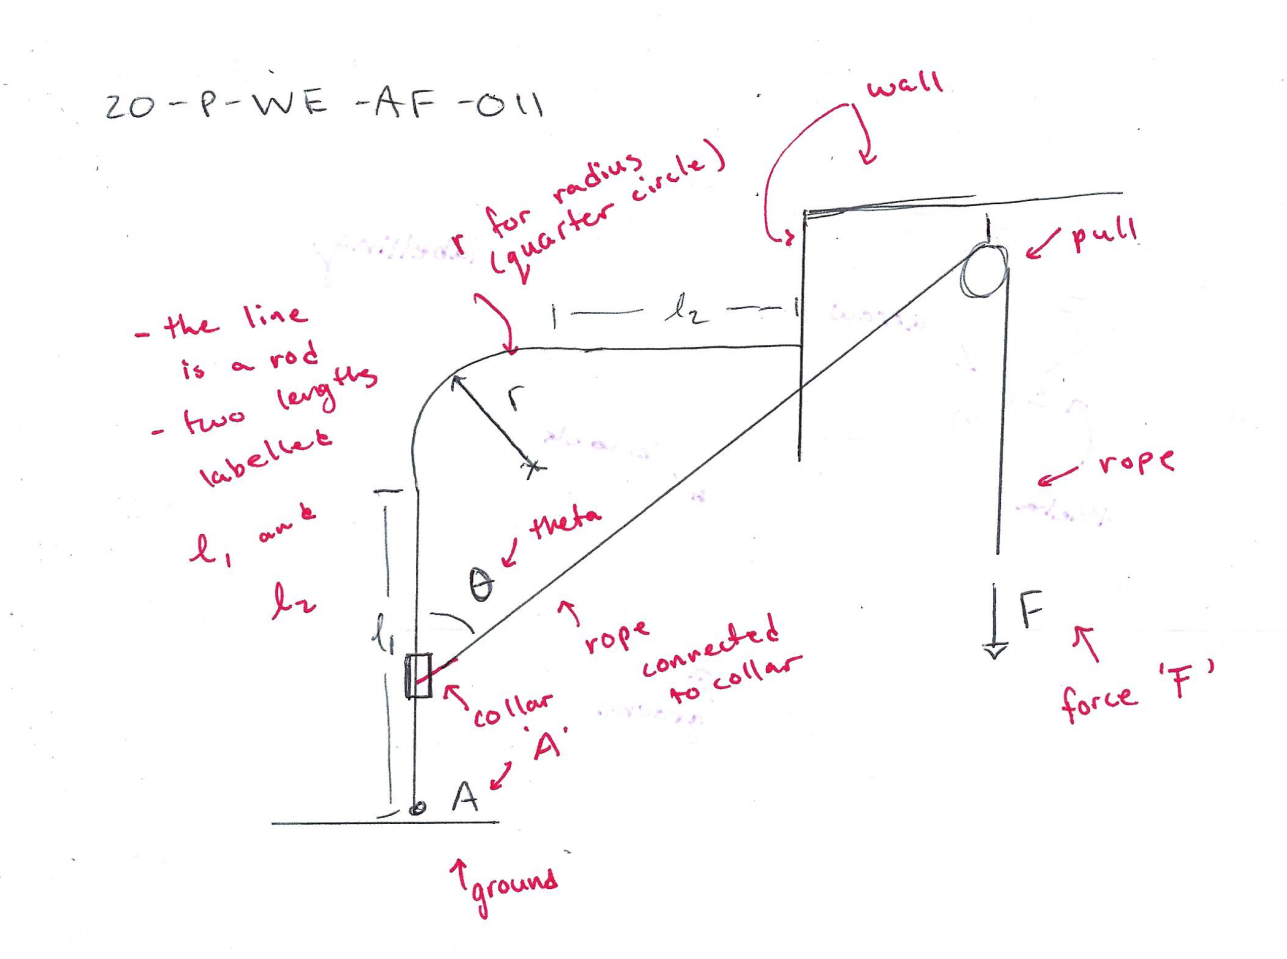 20-P-WE-AF-011
wall
r for radius
(quarter circle)
pull
- the line
is a rod
- two lengths
labelled
l1 and
l2
l2
r
rope
theta
θ
F
l1
rope
connected
to collar
force 'F'
collar
'A'
A
ground